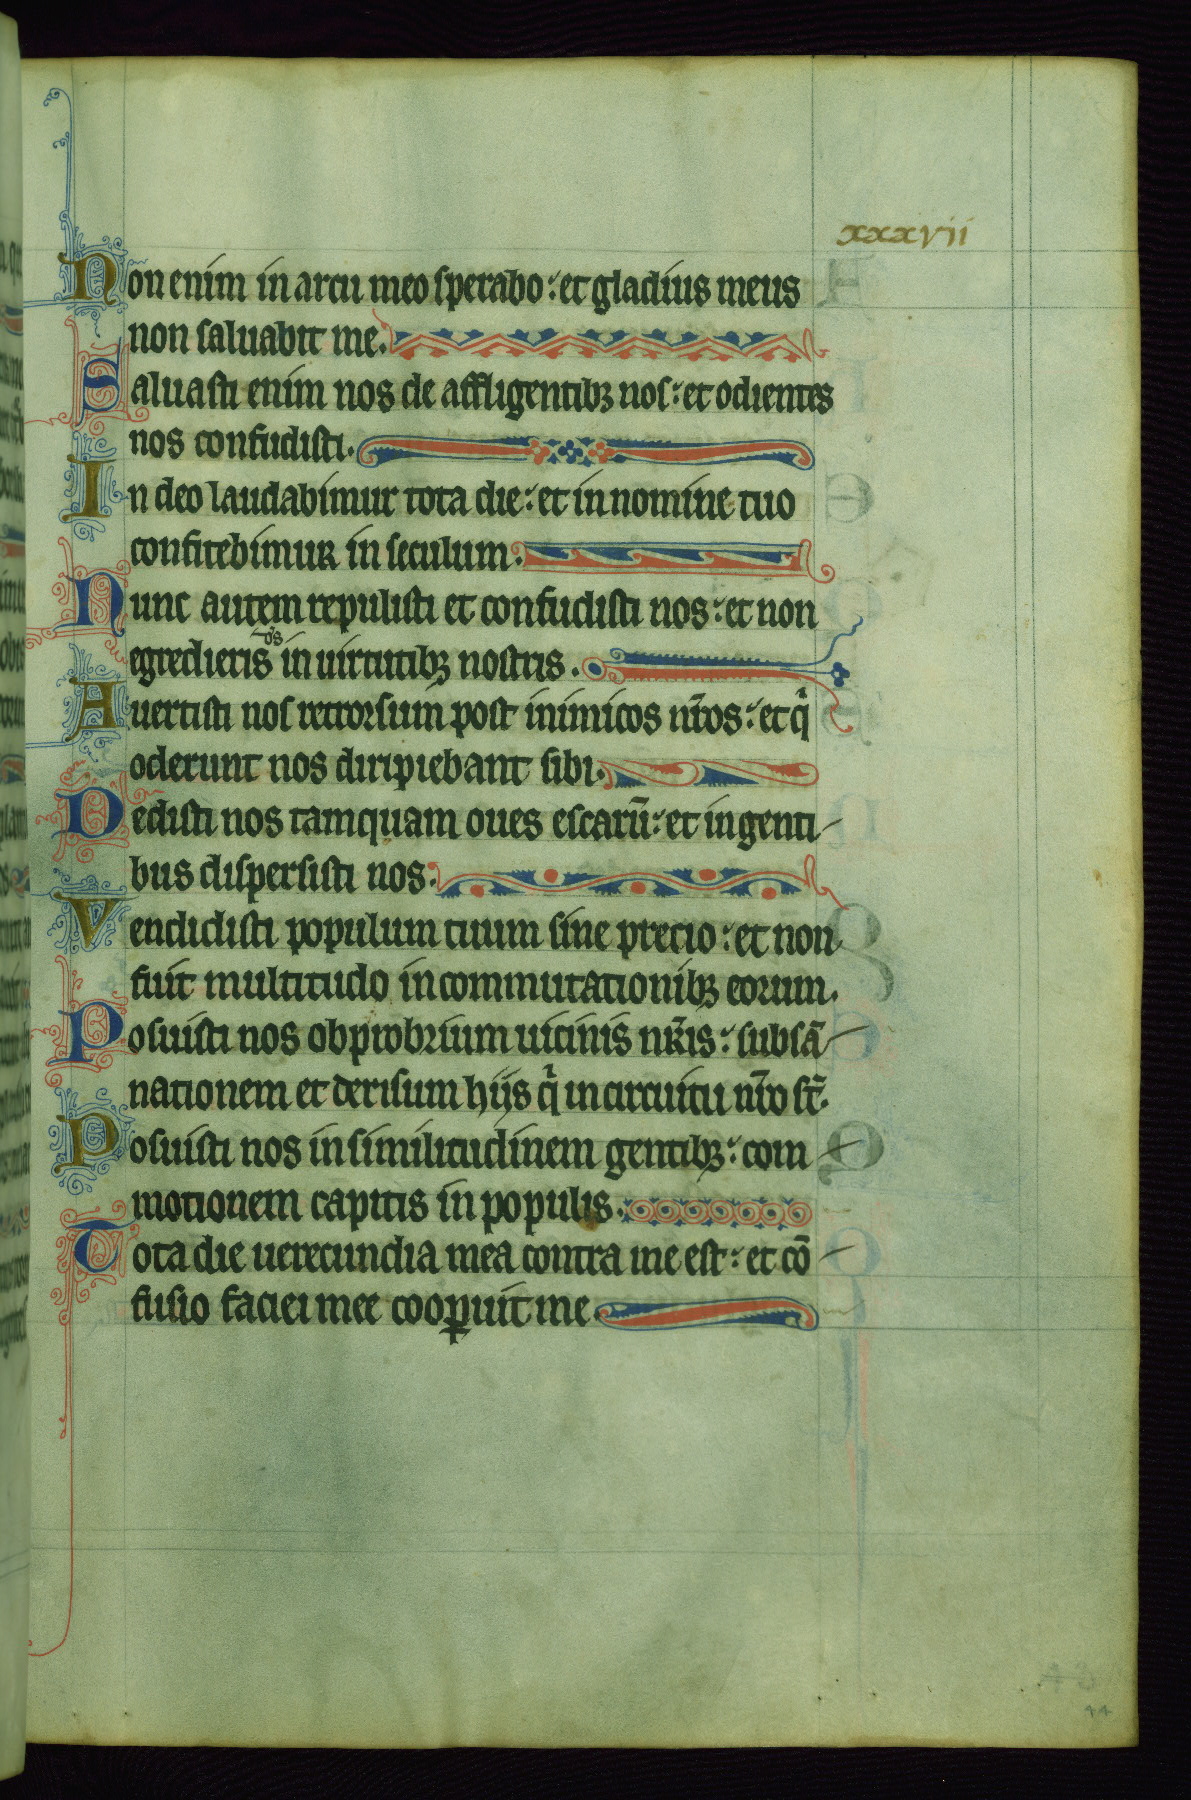 xxxvii
Non enim in arcu meo sperabo : et gladius meus
non saluabit me.
Saluasti enim nos de affligentibꝫ nos : et odientes
nos confudisti.
In deo laudabimur tota die : et in nomine tuo
confitebimur in seculum.
Nunc autem repulisti et confudisti nos : et non
egredieris d̄s in uirtutibꝫ nostris.
Auertisti nos retrorsum post inimicos nr̄os : et qͥ
oderunt nos diripiebant sibi.
Dedisti nos tamquam oues escarū : et in genti
bus dispersisti nos.
Vendidisti populum tuum sine precio : et non
fuit multitudo in commutationibꝫ eorum.
Posuisti nos obprobrium uicinis nr̄is : subsā
nationem et derisum hijs qͥ in circuitu nr̄o st̄.
Posuisti nos in similitudinem gentibꝫ : com
motionem capitis in populis.
Tota die uerecundia mea contra me est : et cō
fusio faciei mee cooꝑuit me.
44